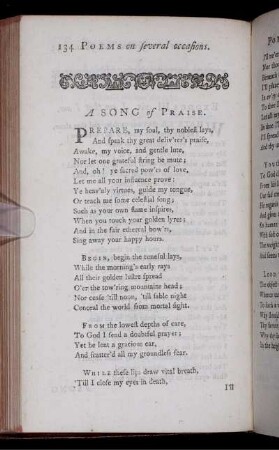 134 POEMS on ſeveral occaſions.
A SONG of PRAISE.
PREPARE, my ſoul, thy nobleſt lays,
And ſpeak thy great deliv'rer's praiſe,
Awake, my voice, and gentle lute,
Nor let one grateful ſtring be mute;
And, oh! ye ſacred pow'rs of love,
Let me all your inſtance prove:
Ye heav'nly virtues, guide my tongue,
Or teach me ſome celeſtial ſong;
Such as your own flame inſpires,
When you touch your golden lyres;
And in the fair ethereal bow'rs,
Sing away your happy hours.
BEGIN, begin the tuneful lays,
While the morning's early rays
All their golden luſtre ſpread
O'er the tow'ring mountains head;
Nor ceaſe 'till noon, 'till ſable night
Conceal the world from mortal ſight.
FROM the loweſt depths of care,
To God I ſend a doubtful prayer;
Yet he lent a gracious ear,
And ſcatter'd all my groundleſs fear.
WHILE theſe lips draw vital breath,
'Till I cloſe my eyes in death,
I'll